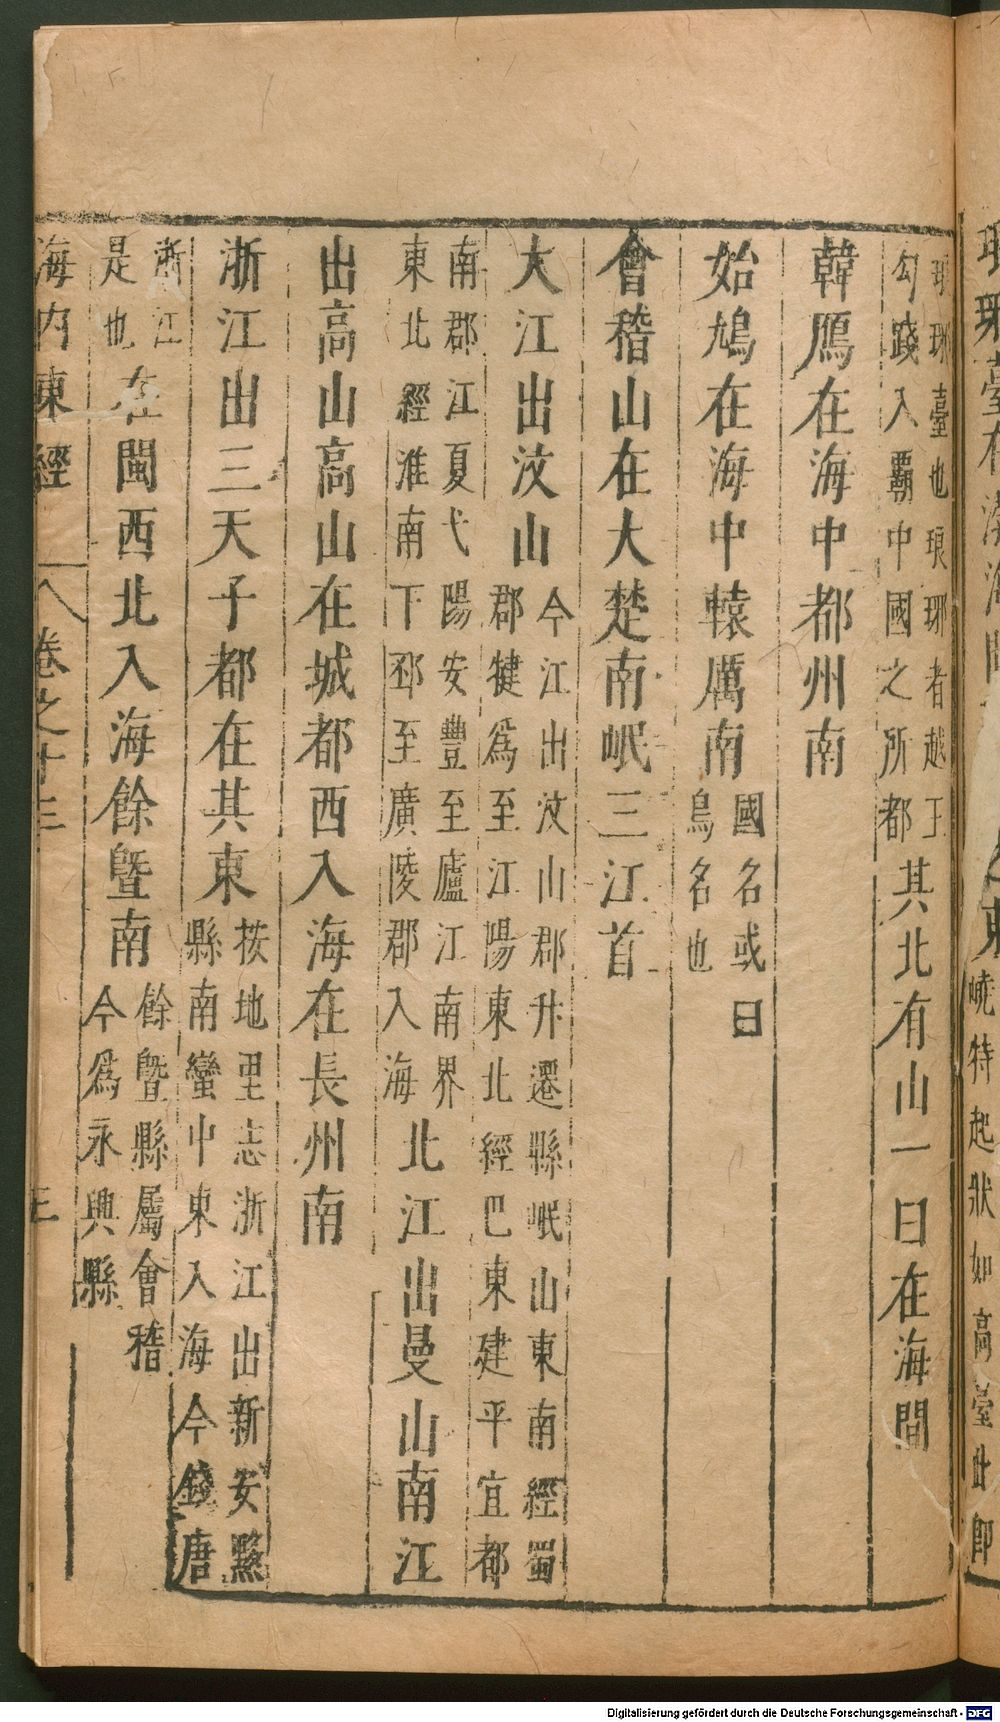 琅琊臺也琅琊者越王
勾踐入霸中國之所都
其北有山一曰在海間
韓鴈在海中都州南
始鳩在海中轅厲南
國名或曰
鳥名也
會稽山在大楚南岷三江首
大江出汶山
今江出汶山郡升遷縣岷山東南經蜀
郡犍爲至江陽東北經巴東建平宜都
南郡江夏弋陽安豐至廬江南界
東北經淮南下邳至廣陵郡入海
北江出曼山南江
出高山高山在城都西入海在長州南
浙江出三天子都在其東
按地里志浙江出新安黟
縣南蠻中東入海今錢唐
浙江
是也
在閩西北入海餘曁南
餘曁縣屬會稽
今爲永興縣
海內東經
卷之十三
三
嶢特起狀如高臺此即
Digitalisierung gefördert durch die Deutsche Forschungsgemeinschaft - DFG